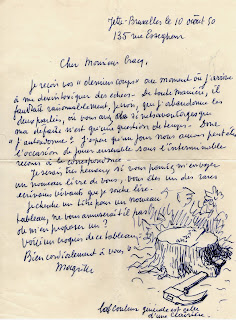 Jette-Bruxelles le 10 août 50
135 rue Esseghem
Cher Monsieur Gracq,
Je reçois vos "derniers coups" au moment où j'arrive
à me désintéresser des échecs. De toute manière, il
faudrait raisonnablement, je crois, que j'abandonne les
deux parties, où vous avez des avantages que
ma défaite n'est qu'une question de temps. Donc
"J'abandonne". J'espère qu'un jour nous aurons peut-être
l'occasion de jouer ensemble sans l'interminable
recours à la correspondance.
Je serais très heureux si vous pouviez m'envoyer
un nouveau livre de vous, vous êtes un des rares
écrivains vivants que je souhaite lire.
Je cherche un titre pour un nouveau
tableau, ne vous amuserait-il pas
de m'en proposer un?
Voici un croquis de ce tableau:
Bien cordialement à vous,
Magritte
la couleur générale est celle
d'une clairière.